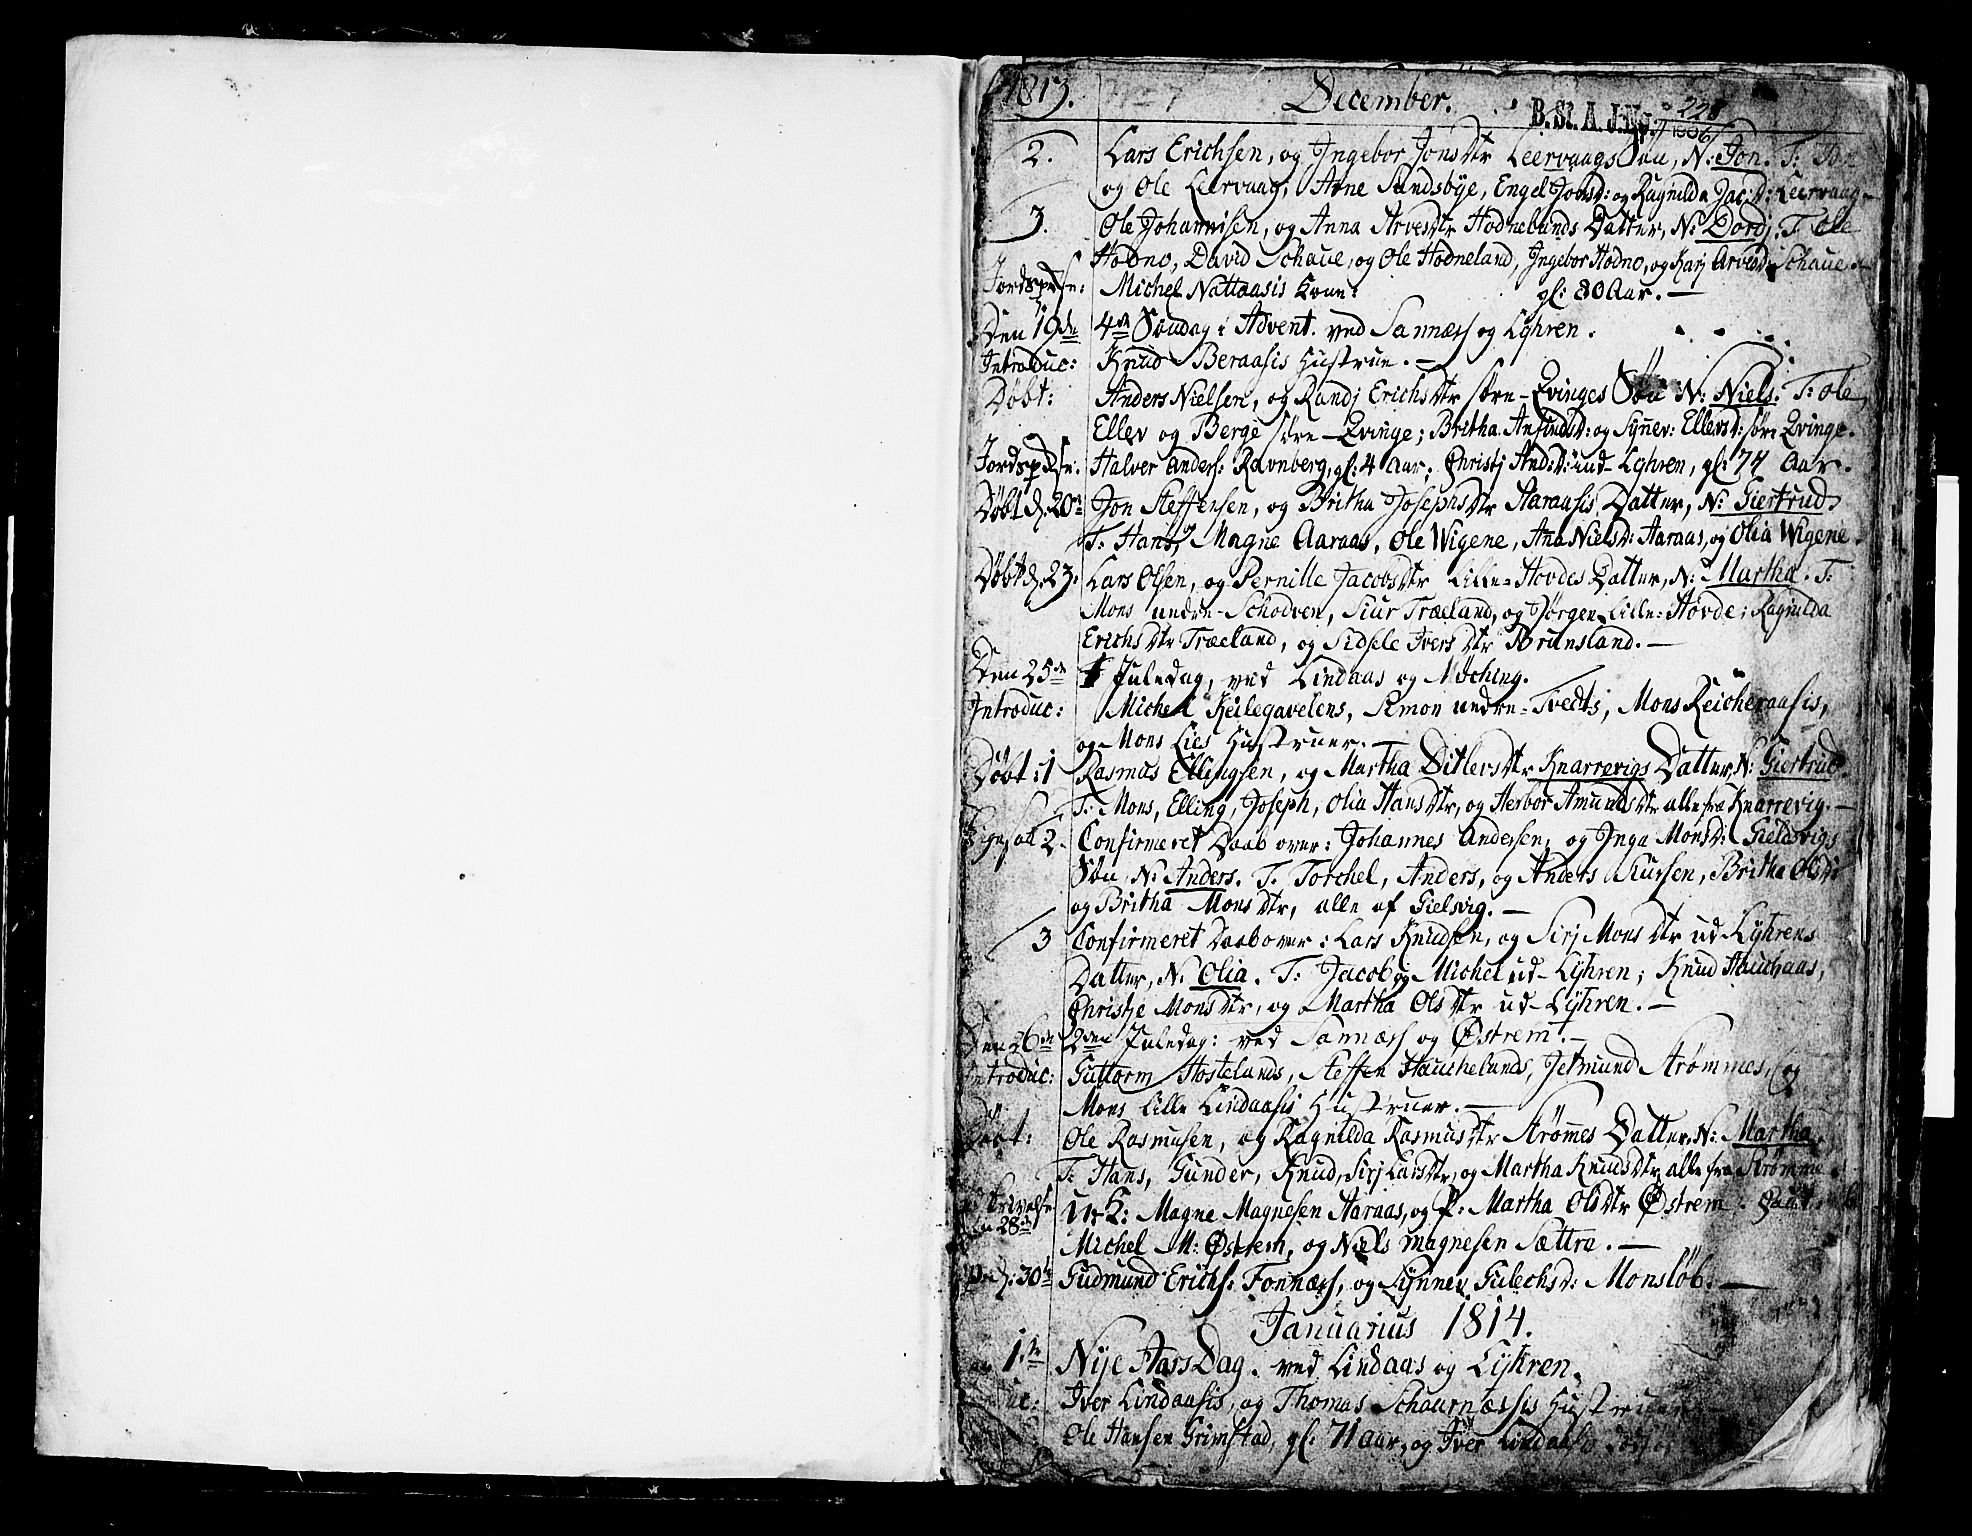 1813. December.
B. St. A. J. No. 228/1906
2. Lars Erichsen, og Ingebor Jonsdtr Leervaags Søn, N: Jon. T:
og Ole Leervaag, Arne Sundsbye, Engel Jonsd: og Ragnilda Jac:d: Leervaag
3. Ole Johannisen, og Anna Arvesdtr Hodnelands Datter, N: Dordj. T. Ole
Hodno, David Schaue, og Ole Hodneland, Ingebor Hodno, og Karj Arvesd: Schaue.
Jordspdse: Michel Nattaasis Kone: gl: 80 Aar. —
Den 19de 4de Søndag i Advent. ved Sannæss og Lyhren.
Introduc: Knud Beraasis Hustrue. —
Døbt: Anders Nielsen, og Randj Erichsdtr søre-Qvinges Søn N: Niels. T: Ole,
Ellev og Berge søre-Qvinge; Britha Ansindsd: og Synnev: Ellevsd: søre Qvinge.
Jordspdse: Halver Anders: Ravnberg, gl: 4 Aar. Christj And:d: ud-Lyhren, gl: 77 Aar.
Døbt d. 20de Jon Steffensen, og Britha Josephsdtr Aaraasis Datter, N: Giertrud
T. Hans, Magne Aaraas, Ole Wigene, Ana Nielsd: Aaraas, og Olia Wigene.
Døbt d. 23. Lars Olsen, og Pernille Jacobsdtr Lille-Hovdes Datter, N: Martha. T:
Mons nedre-Schodven, Siur Træland, og Jørgen Lille-Hovde; Ragnilda
Erichsdtr Træeland, og Sidsele Iversdtr Brunsland. —
Den 25de 1 Juledag, ved Lindaas og Myching.
Introduc: Michel Keilegavelens, Simon nedre-Tvedts, Mons Reicheraasis,
og Mons Lies Hustruer. —
Døbt: 1 Rasmus Ellingsen, og Martha Ditlevsdtr Knarrevigs Datter, N: Giertrud.
T. Mons, Elling, Joseph, Olia Hansdtr, og Herbor Amundsdtr alle fra Knarrevig. —
2. Confirmeret Daab over: Johannes Andersen, og Inga Monsd: Gielsvigs
Søn, N: Anders. T. Torchel, Anders, og Anders Siursen, Britha Olsd:
og Britha Monsdtr, alle af Gielsvig. —
3 Confirmeret Daab over: Lars Knudsen, og Sirj Monsdtr ud-Lyhrens
Datter, N. Olia. T. Jacob og Michel ud-Lyhren; Knud Hauchaas,
Christje Monsdtr, og Martha Olsdtr ud-Lyhren. —
Den 26de 2den Juledag: ved Sannæss og Østrem. —
Introduc: Guttorm Hostelands, Steffen Hauchelands, Jetmund Strømmes, og
Mons Lille Lindaasis Hustruer. —
Døbt: Ole Rasmusen, og Ragnilda Rasmusdtr Strømes Datter, N: Martha.
T. Hans, Gunder, Knud, Sirj Larsdtr, og Martha Knudsdtr alle fra Strømme.
Den 28de U:K: Magne Magnesen Aaraas, og P: Martha Olsdtr Østrem.
Michel M: Østrem, og Niels Magnesen Sættre. —
d: 30te Gudmund Erichs: Fonnæss, og Synnev Gulechsd: Monsløb. —
Januarius 1814.
1te Nye Aars Dag. ved Lindaas og Lyhren.
Iver Lindaasis, og Thomas Schaurnæssis Hustruer
Ole Hansen Grimstad, gl: 71 Aar, og Iver Lindaasis